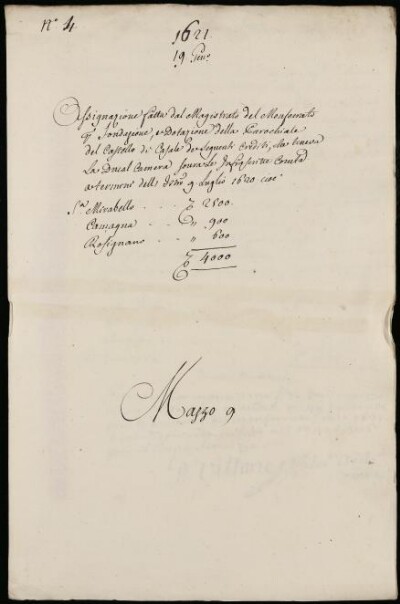 N.° 4
1621
19 Gen.°
Assignazione fatta dal Magistrato del Monferrato
p fondazione, e Dotazione della Parochiale
del Castello di Casale de seguenti crediti, che teneva
La Ducal Camera sovra le infrascritte Comtà
a termini dell' 9 Luglio 1620 cioè
Sa Mirabello - - - £ 2500.
Camagna - - " 900
Rosignano - - " 600
£ 4000
Mazzo 9